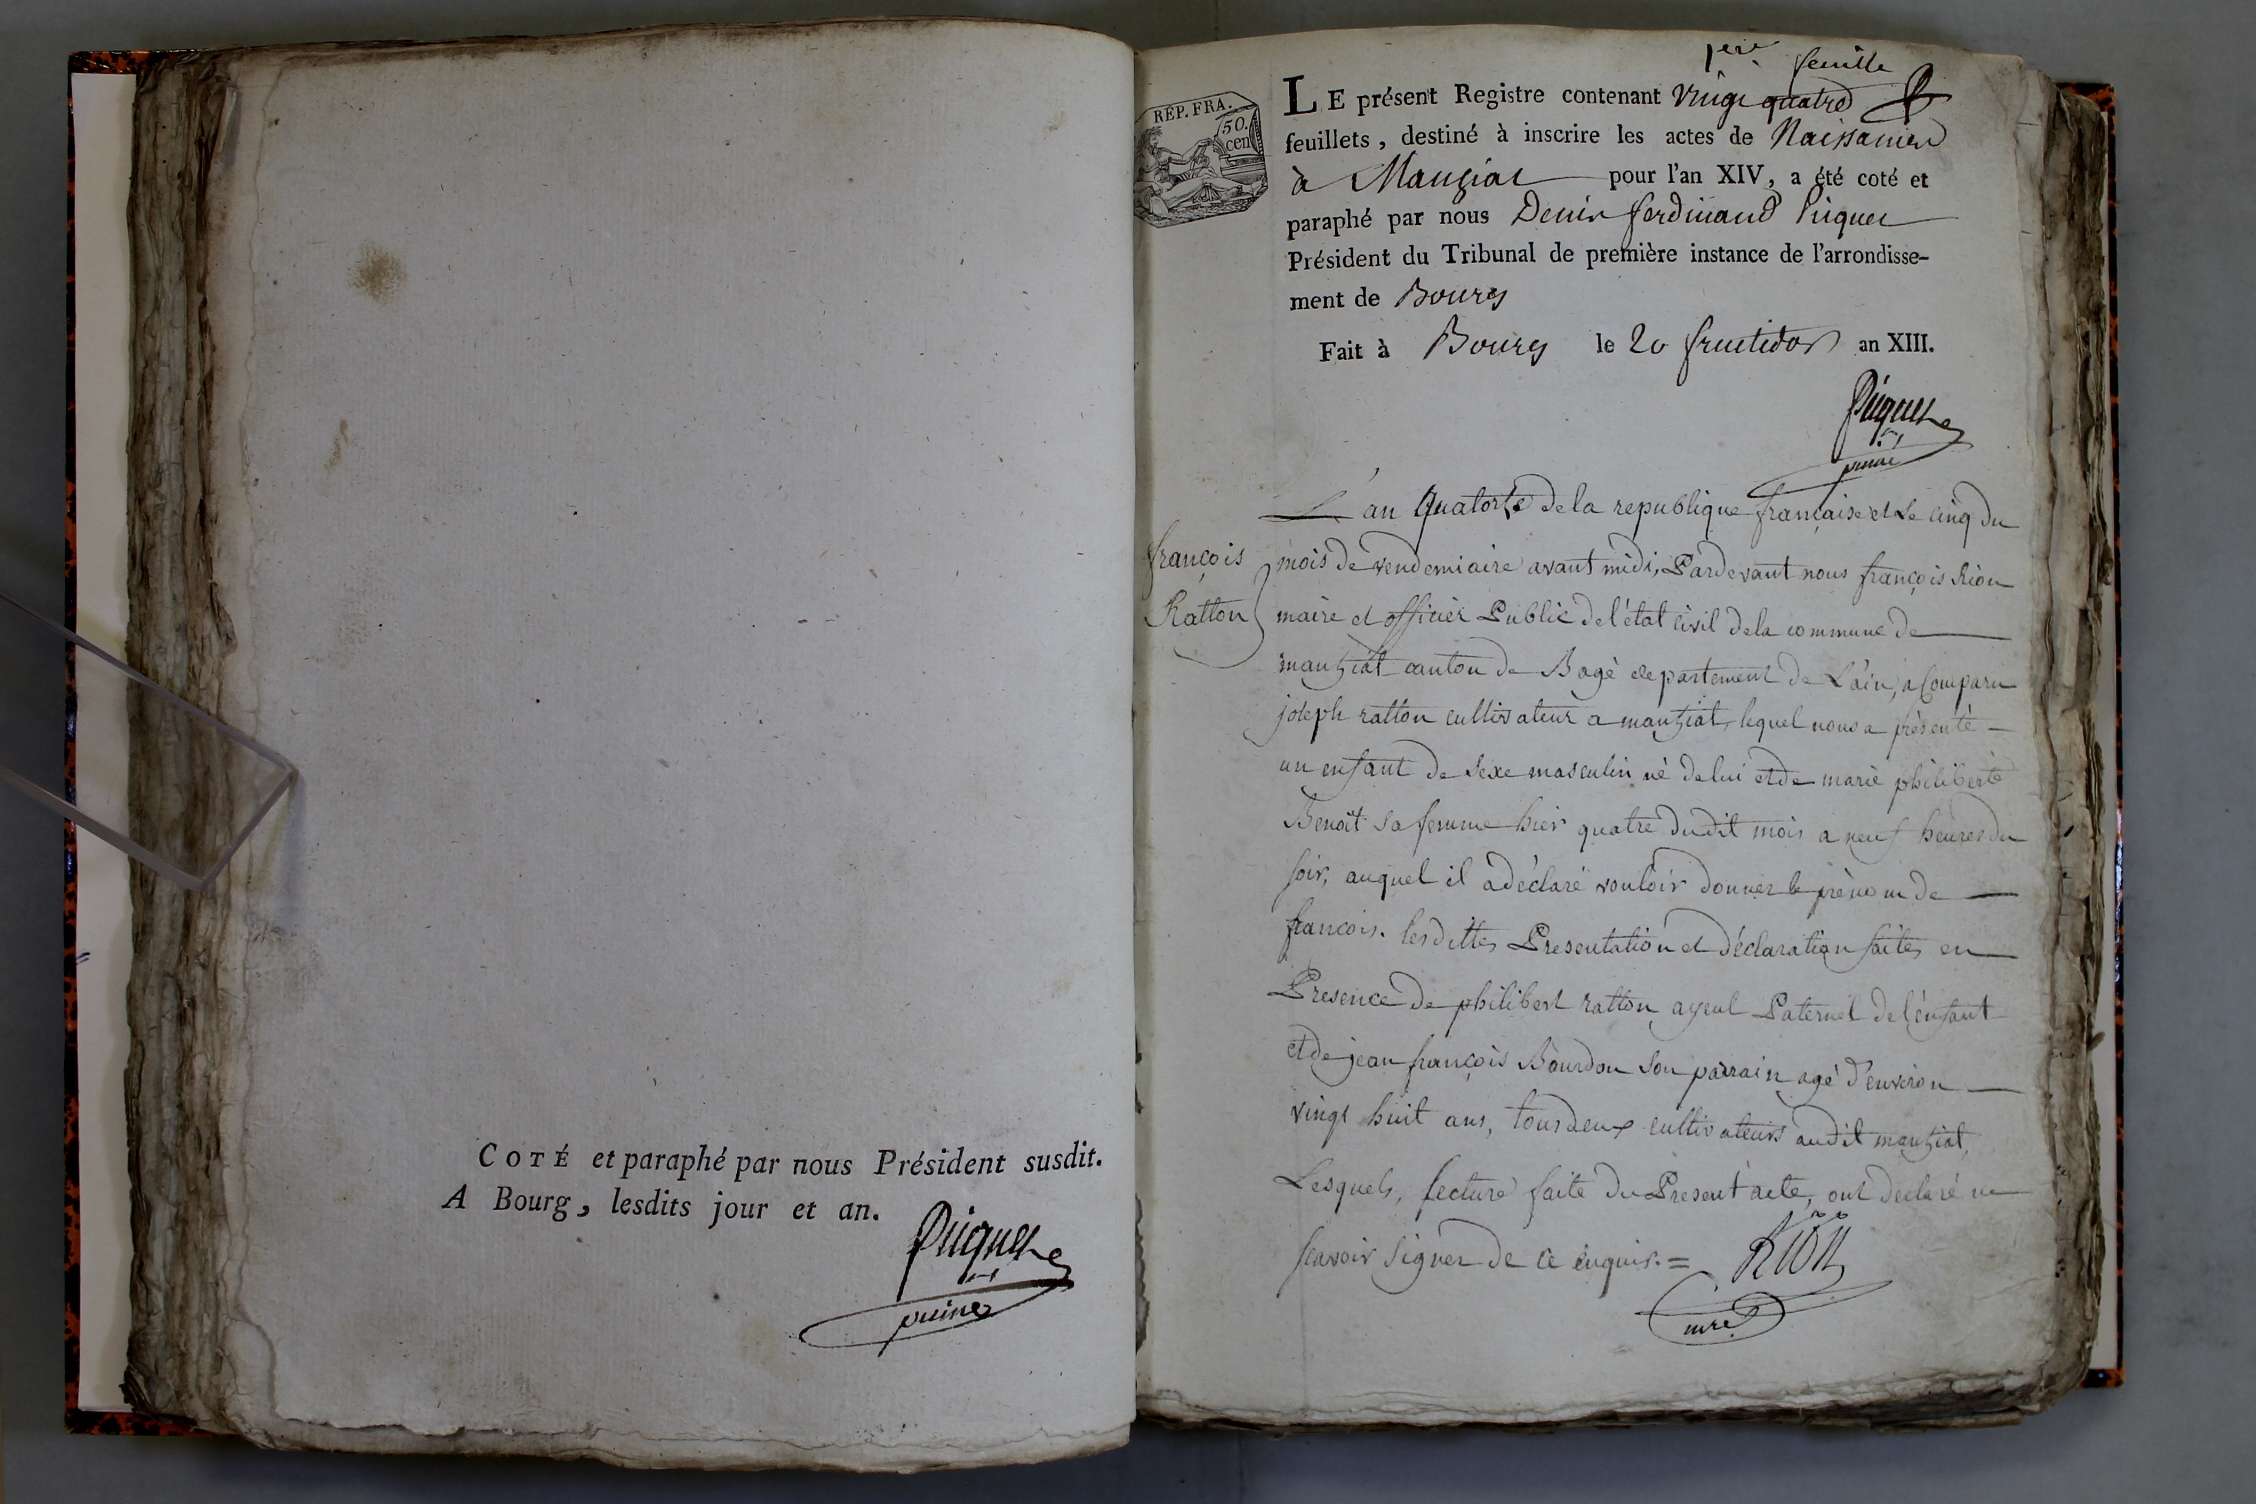 COTÉ et paraphé par nous Président susdit.
A Bourg, lesdits jour et an.
Piquet
1ere feuille
RÉP. FRA.
50.
cen
LE présent Registre contenant vingt quatre
feuillets, destiné à inscrire les actes de Naissances
à Manziat pour l'an XIV, a été coté et
paraphé par nous Denis ferdinand Piquet
Président du Tribunal de première instance de l'arrondisse-
ment de Bourg
Fait à Bourg le 20 fructidor an XIII.
Piquet
françois
Ratton
L'an quatorze de la republique française et le cinq du
mois de vendemiaire avant midi, Pardevant nous françois Rion
maire et officier Public de l'état civil de la commune de
manziat canton de Bagé departement de L'ain, a Comparu
joseph ratton cultivateur a manziat, lequel nous a présenté
un enfant de sexe masculin né de lui et de marie philiberte
Benoît sa femme hier quatre dudit mois a neuf heures du
soir, auquel il a déclaré vouloir donner le prénom de
françois. lesdittes Presentation et déclaration faites en
Presence de philibert ratton ayeul Paternel de l'enfant
et de jean françois Bourdon son parrain agé d'environ
vingt huit ans, tous deux cultivateurs audit manziat,
Lesquels, lecture faite du Present acte, ont declaré ne
scavoir signer de ce enquis. = Rion
mre